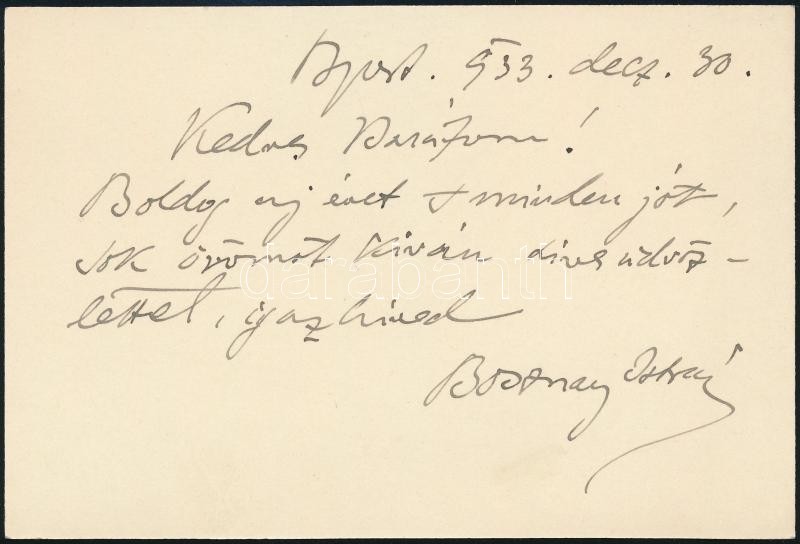 Bpest. 933. decz. 30.
Kedves Barátom!
Boldog uj évet s minden jót,
sok örömöt kíván szíves üdvöz-
lettel, igaz híved
Bosznay István
darabanth